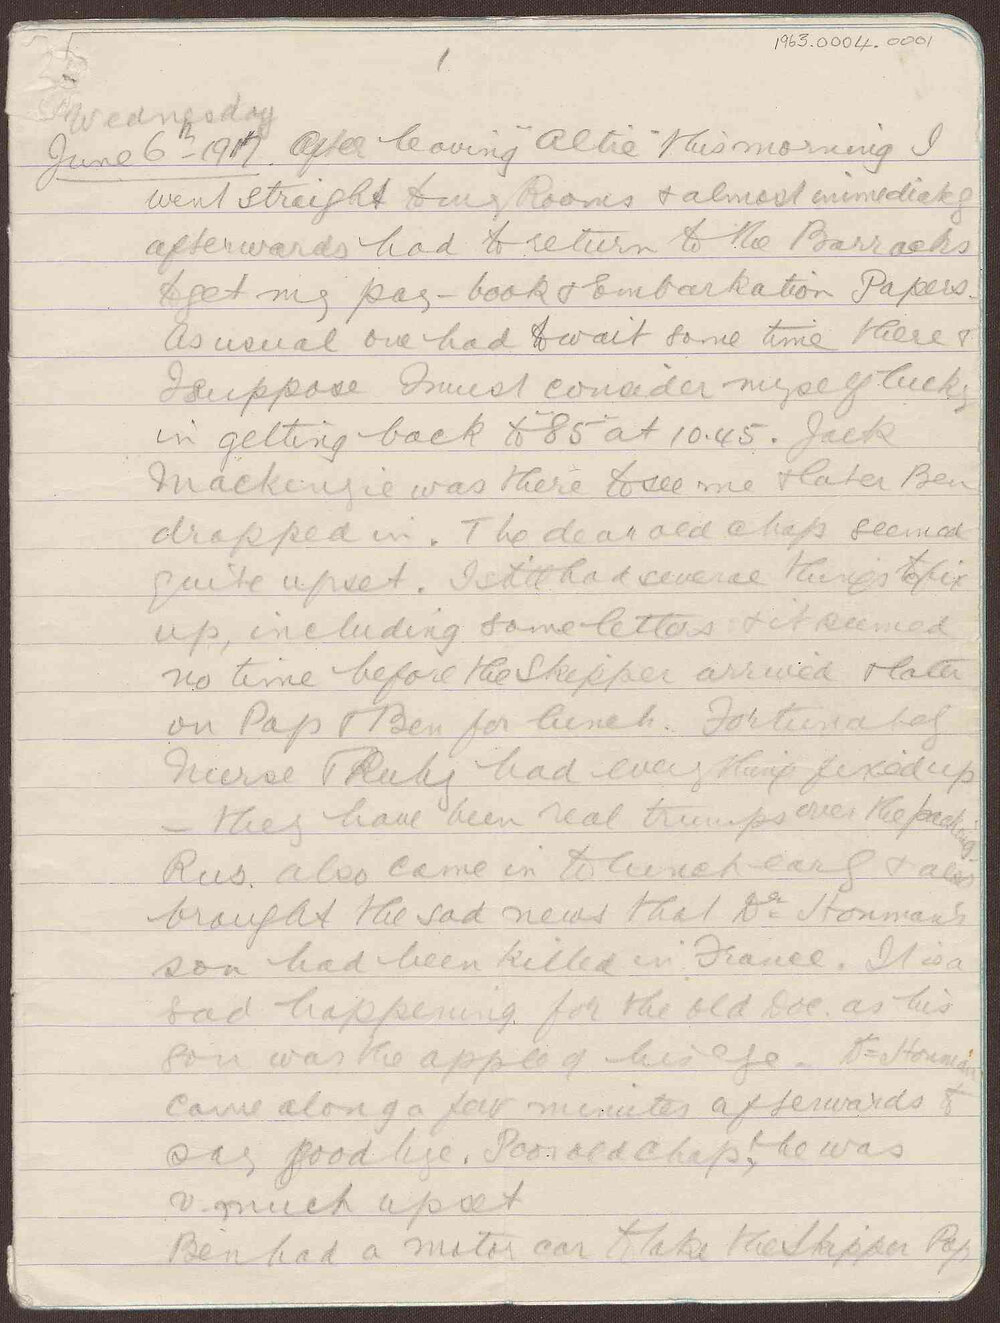 1963.0004.0001
1
Wednesday
June 6th - 1917. After leaving "Altie" this morning I
went straight to my Rooms & almost immediately
afterwards had to return to the Barracks
to get my pay-book & Embarkation Papers.
As usual one had to wait some time there &
I suppose I must consider myself lucky
in getting back to "85" at 10.45. Jack
Mackenzie was there to see me & later Ben
dropped in. The dear old chap seemed
quite upset. I still had several things to fix
up, including some letters & it seemed
no time before the Skipper arrived & later
on Pap & Ben for lunch. Fortunately
Nurse & Ruby had everything fixed up
- they have been real trumps over the packing.
Rus. also came in to lunch early & also
brought the sad news that Dr. Honman's
son had been killed in France. It is a
sad happening for the old Doc. as his
son was the apple of his eye. Dr Honman
came along a few minutes afterwards to
say good bye. Poor old chap, he was
v. much upset
Ben had a motor car to take the Skipper Pap